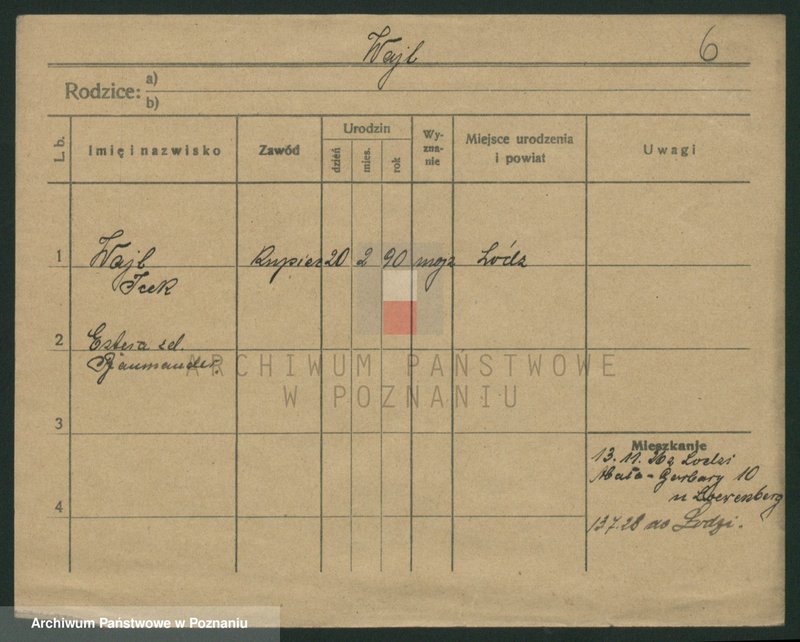 Wajl 6
Rodzice: a)
b)
L. b. Imię i nazwisko Zawód Urodzin dzień mies. rok Wy-zna-nie Miejsce urodzenia i powiat Uwagi
1 Wajl Kupiec 20 2 90 mojz Łódz
Icek
2 Estera zd.
3
4
Mieszkanie
13. 11. z Lodzi
Mała-Garbary 10
u Loewenberg
13 7. 28 do Lodzi.
ARCHIWUM PAŃSTWOWE
W POZNANIU
Archiwum Państwowe w Poznaniu